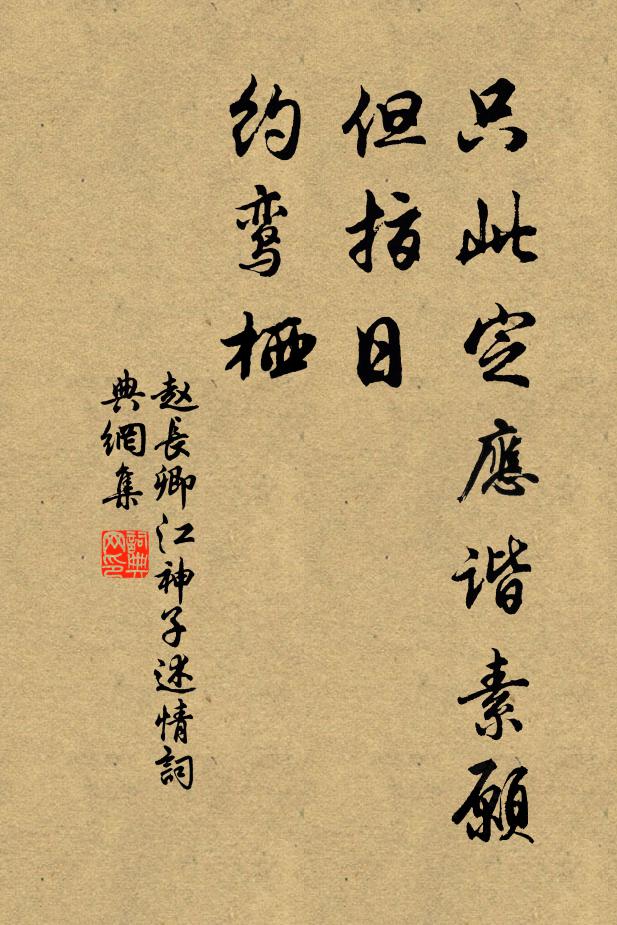 只此定應谐素願
但指日
約鸾栖
赵長卿江神子述情詞
典網集
詞典
网印